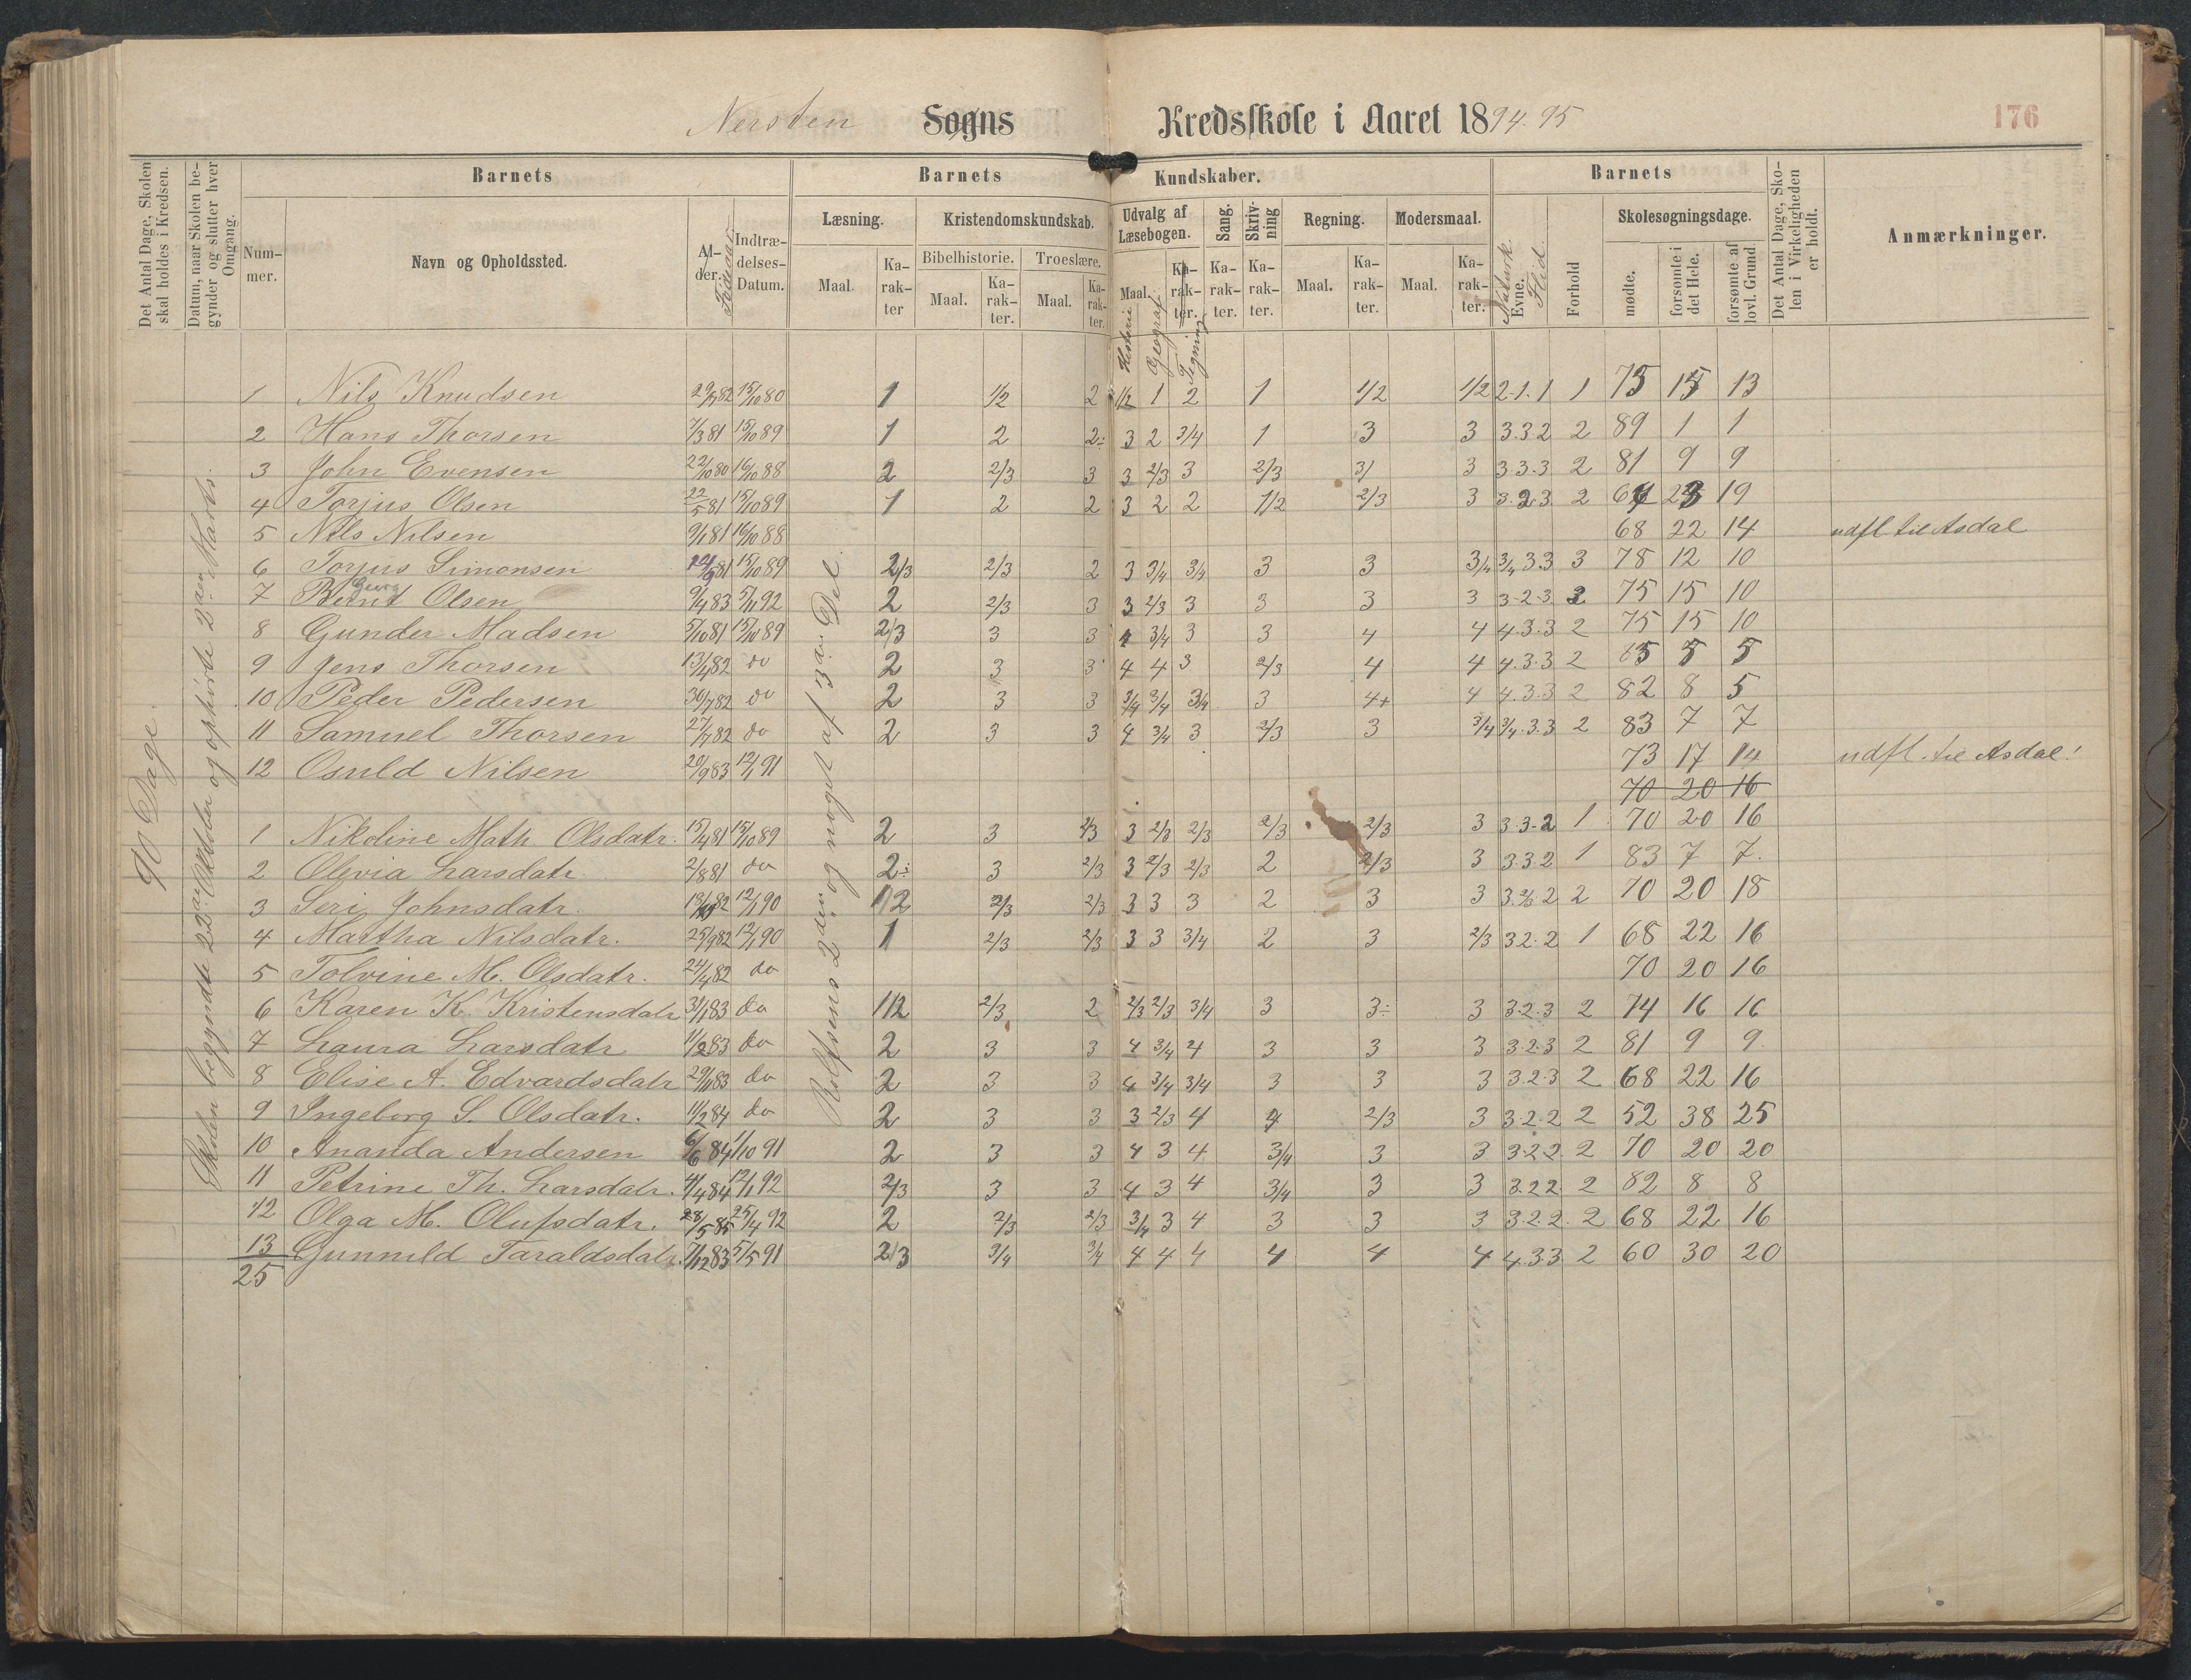 Nersten Sogns Kredsskole i Aaret 1894.95
176
Det Antal Dage, Skolen skal holdes i Kredsen.
Datum, naar Skolen begynder og slutter hver Omgang.
Barnets
Nummer.
Navn og Opholdssted.
Alder. Fødselsaar
Indtrædelses-Datum.
Barnets Kundskaber.
Læsning.
Maal.
Karakter
Kristendomskundskab.
Bibelhistorie.
Maal.
Karakter.
Troeslære.
Maal.
Karakter.
Udvalg af Læsebogen.
Maal.
Karakter.
Historie
Geografi
Tegning
Sang.
Karakter.
Skrivning
Karakter.
Regning.
Maal.
Karakter.
Modersmaal.
Maal.
Karakter.
Barnets
Naturk.
Evne.
Flid.
Forhold
Skolesøgningsdage.
mødte.
forsømte i det Hele.
forsømte af lovl. Grund.
Det Antal Dage, Skolen i Virkeligheden er holdt.
Anmærkninger.
90 Dage.
Skolen begyndte 22de Oktober og ophørte 2den Marts.
Rolfsens 2den og noget af 3die Del.
1 Nils Knudsen 29/7 82 15/10 80 1 1/2 2 1/2 1 2 1 1/2 1/2 2.1.1 1 75 15 13
2 Hans Thorsen 7/3 81 15/10 89 1 2 2÷ 3 2 3/4 1 3 3 3.3.2 2 89 1 1
3 John Evensen 22/10 80 16/10 88 2 2/3 3 3 2/3 3 2/3 3/ 3 3.3.3 2 81 9 9
4 Torjus Olsen 22/5 81 15/10 89 1 2 2 3 2 2 1/2 2/3 3 3.2.3 2 67 23 19
5 Nils Nilsen 9/1 81 16/10 88 68 22 14 udfl. til Asdal
6 Torjus Simonsen 81 15/10 89 2/3 2/3 2 3 3/4 3/4 3 3 3/4 3/4 3.3 3 78 12 10
7 Bernt Georg Olsen 9/4 83 5/11 92 2 2/3 3 3 2/3 3 3 3 3 3.2.3 2 75 15 10
8 Gunder Madsen 5/10 81 15/10 89 2/3 3 3 4 3/4 3 3 4 4 4.3.3 2 75 15 10
9 Jens Thorsen 13/4 82 do 2 3 3 4 4 3 2/3 4 4 4.3.3 2 5 5
10 Peder Pedersen 30/7 82 do 2 3 3 3/4 3/4 3/4 3 4+ 4 4.3.3 2 82 8 5
11 Samuel Thorsen 27/7 82 do 2 3 3 4 3/4 3 2/3 3 3/4 3/4.3.3 2 83 7 7
12 Osuld Nilsen 20/9 83 12/1 91 73 17 14 udfl. til Asdal!
70 20 16
1 Nikoline Math. Olsdatr. 15/4 81 15/10 89 2 3 2/3 3 2/3 2/3 2/3 2/3 3 3.3.2 1 70 20 16
2 Olevia Larsdatr. 2/8 81 do 2÷ 3 2/3 3 2/3 2/3 2 2/3 3 3.3.2 1 83 7 7.
3 Seri Johnsdatr. 82 12/1 90 1/2 2/3 2/3 3 3 3 2 3 3 3.2/3 2 2 70 20 18
4 Martha Nilsdatr. 25/9 82 12/1 90 1 2/3 2/3 3 3 3/4 2 3 2/3 3.2.2 1 68 22 16
5 Tolvine M. Olsdatr. 24/4 82 do 70 20 16
6 Karen K. Kristensdatr 31/1 83 do 1/2 2/3 2 2/3 2/3 3/4 3 3÷ 3 3.2.3 2 74 16 16
7 Laura Larsdatr 11/2 83 do 2 3 3 4 3/4 4 3 3 3 3.2.3 2 81 9 9.
8 Elise A. Edvardsdatr 29/11 83 do 2 3 3 4 3/4 3/4 3 3 3 3.2.3 2 68 22 16
9 Ingeborg S. Olsdatr. 11/2 84 do 2 3 3 3 2/3 4 4 2/3 3 3.2.2 2 52 38 25
10 Ananda Andersen 6/6 84 1/10 91 2 3 3 4 3 4 3/4 3 3 3.2.2. 2 70 20 20
11 Petrine Th. Larsdatr. 4/4 84 12/1 92 2/3 3 3 4 3 4 3/4 3 3 3.2.2. 2 82 8 8
12 Olga M. Olufsdatr. 28/5 85 25/4 92 2 2/3 2/3 3/4 3 4 3 3 3 3.2.2. 2 68 22 16
13 Gunnild Taraldsdatr. 7/12 83 5/5 91 2/3 3/4 3/4 4 4 4 4 4 4 4.3.3 2 60 30 20
25